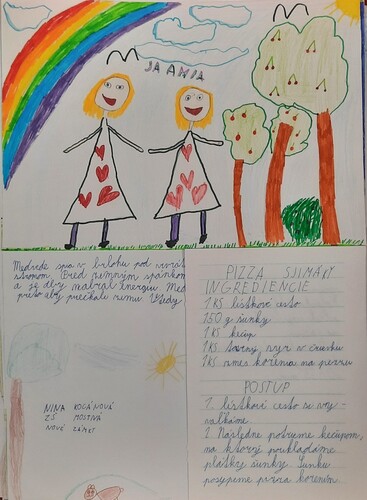 JA ANJA
Medvede spia v brlohu pod
stromom. Pred zimným spánkom
a je aby nabral energiu. Med
preto aby prečkali zimu. Vtedy
NINA KOCÁNOVÁ
ZŠ MOSTNÁ
NOVÉ ZÁMKY
PIZZA SLIMÁKY
INGREDIENCIE
1 KS lístkové cesto
150 g šunky
1KS kečup
1KS tavený syr v črievku
1KS zmes korenia na pizzu
POSTUP
1. lístkové cesto si vy-
valkáme
2. Následne potrieme kečupom,
na ktorý poukladáme
plátky šunky. Šunku
posypeme pizza korením.